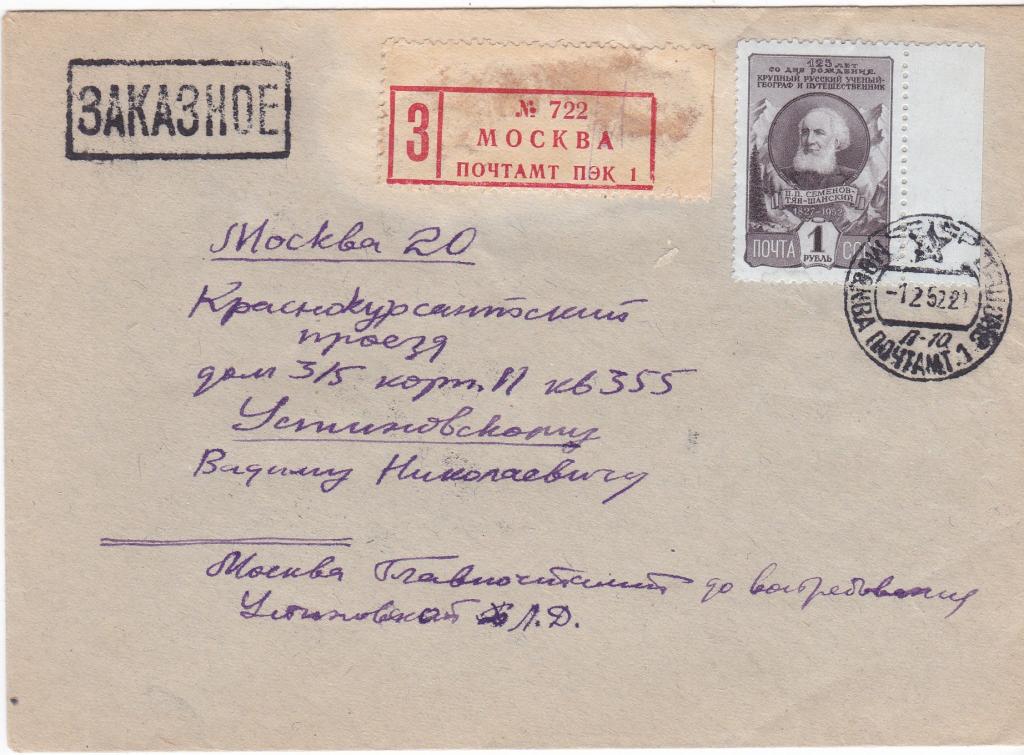 ЗАКАЗНОЕ
З
№ 722
МОСКВА
ПОЧТАМТ ПЭК 1
125 ЛЕТ
СО ДНЯ РОЖДЕНИЯ
КРУПНЫЙ РУССКИЙ УЧЕНЫЙ-
ГЕОГРАФ И ПУТЕШЕСТВЕННИК
П.П. СЕМЕНОВ-
ТЯН-ШАНСКИЙ
1827-1952
ПОЧТА 1 РУБЛЬ
МОСКВА ПОЧТАМТ.1
П-10
Москва 20
Краснокурсантский
проезд
дом 3/5 корп. П кв 355
Устиновскому
Вадиму Николаевичу
Москва Главпочтамт до востребования
Устиновской Л.Д.